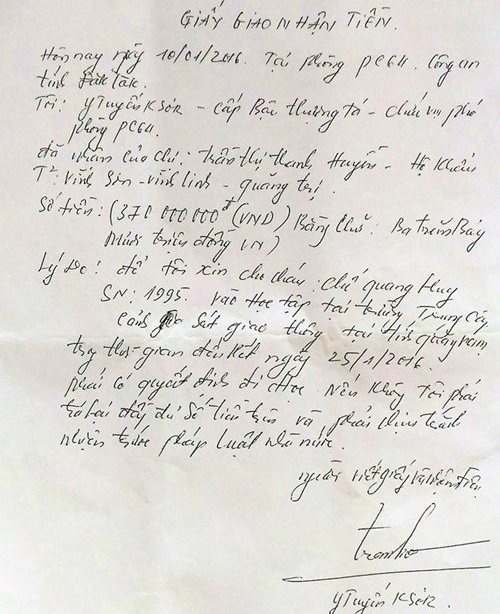 GIẤY GIAO NHẬN TIỀN.
Hôm nay ngày 10/01/2016. Tại phòng PC64. Công an
tỉnh Đăk Lăk.
Tôi: YTuyên KSOR - cấp Bậc thượng tá - chức vụ phó
phòng PC64.
đã nhận của chị: Trần thị thanh Huyền - Hộ Khẩu
T²: Vĩnh Sơn - vĩnh linh - quảng trị.
Số tiền: (370 000 000đ (VND) Bằng chữ: Ba trăm Bảy
Mươi triệu đồng VN)
Lý do: để tôi xin cho cháu: chế quang Huy
SN: 1995. vào học tập tại trường Trung cấp
Cảnh Sát giao thông tại
thời gian đến hết ngày 25/1/2016.
phải có quyết định đi học. Nếu không Tôi phải
trả lại đầy đủ số tiền trên và phải chịu trách
nhiệm trước pháp luật nhà nước.
người viết giấy và nhận tiền
YTuyên KSOR.